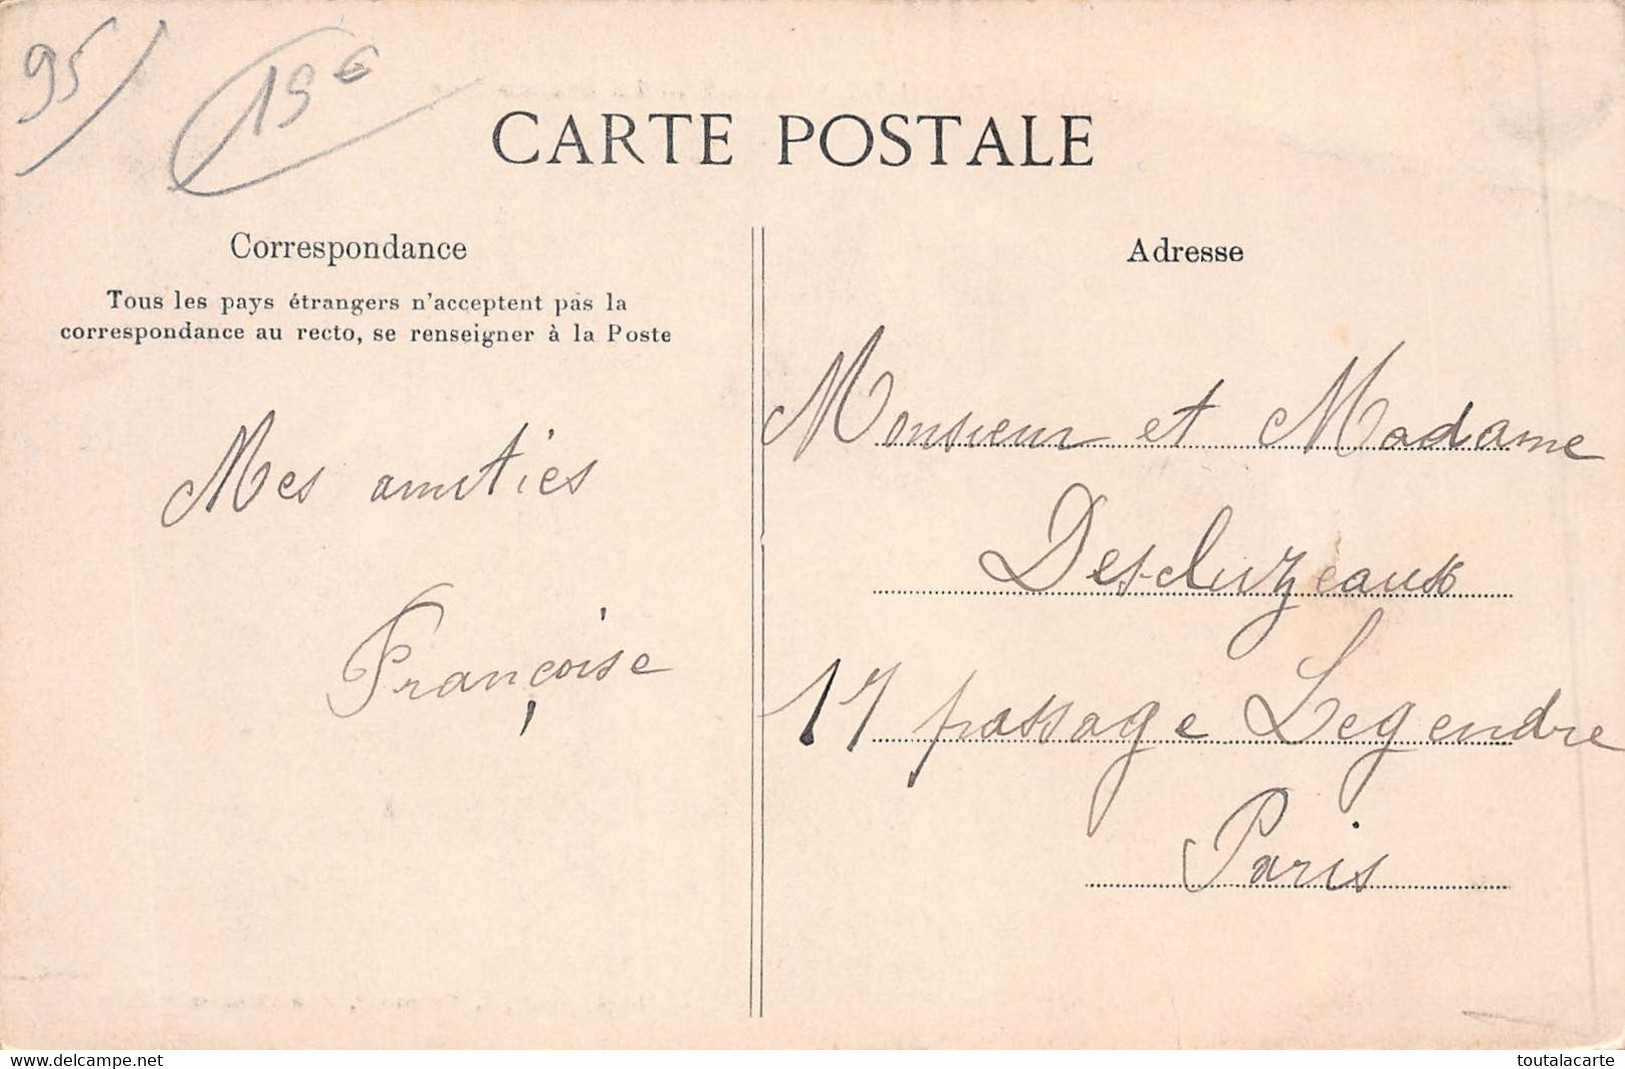 95/
15€
CARTE POSTALE
Correspondance
Tous les pays étrangers n'acceptent pas la
correspondance au recto, se renseigner à la Poste
Mes amitiés
Françoise
Adresse
Monsieur et Madame
Descluzeaux
17 passage Legendre
Paris
www.delcampe.net
toutalacarte